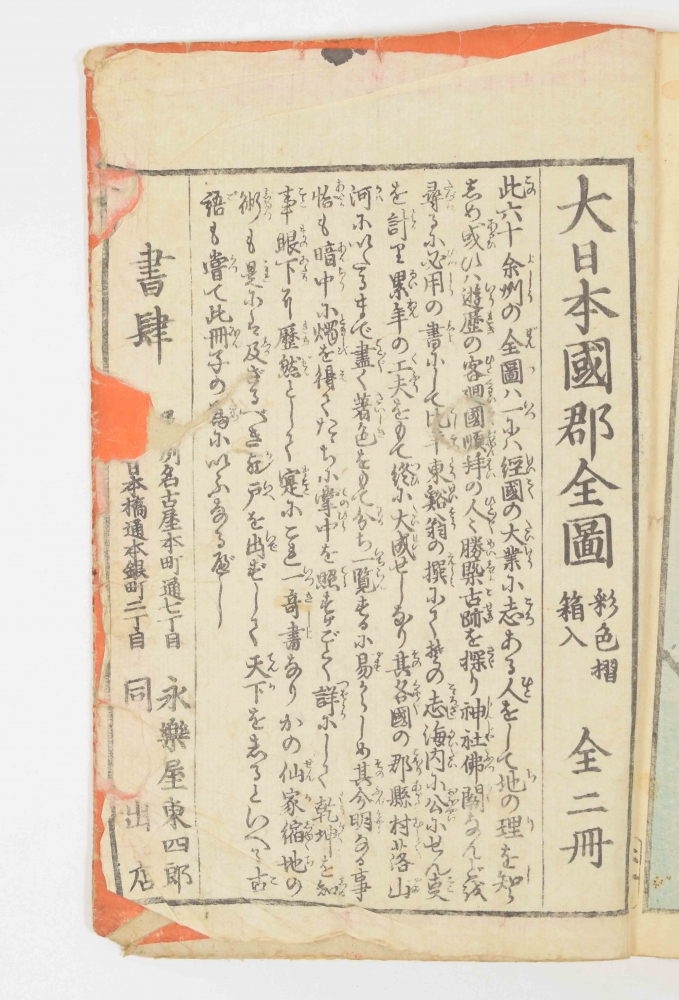 大日本國郡全圖 彩色摺 箱入 全二冊
此六十余州の全圖ハ一ハ經國の大業に志ある人をして地の理を知ら
しめ或ハ遊歴の客廻國順拝の人々勝槩古跡を探り神社佛閣なんどを
尋るに必用の書にして此年東谿翁の撰にして其の志海内に公にせん
を計里累年の工夫をもて終に大成せしなり其各國の郡縣村落山
河にいたるまで盡く著色をもて分ち一覧するに易からしめ其分明なる事
恰も暗中に燭を得くたちに掌中を照すごとく詳にして乾坤を知
事眼下に歴然として寔にこれ一奇書なりかの仙家縮地の
術も是にハ及ざるべき歟戸を出ずして天下をしるといへる古
語も嘗て此冊子の為にいふなるべし
書肆 名古屋本町通七丁目 永樂屋東四郎
日本橋通本銀町二丁目 同出店